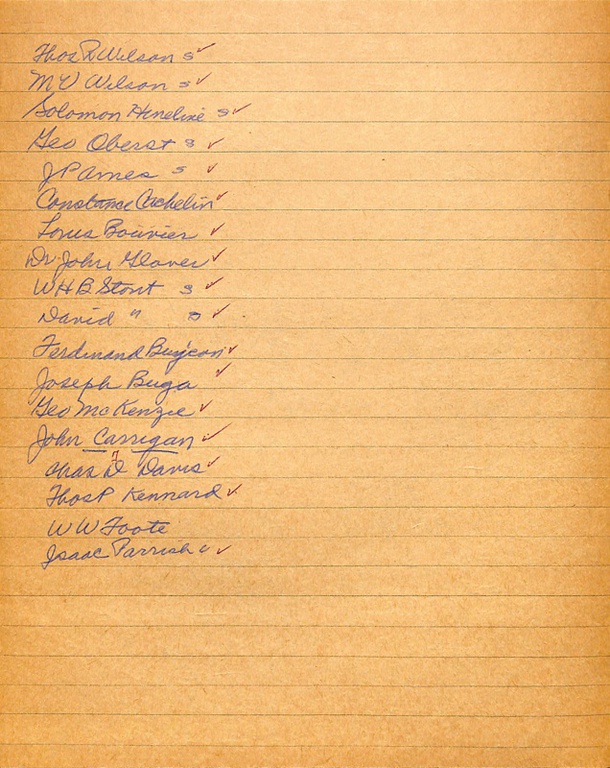 Thos R Wilson s ✓
M V Wilson s ✓
Solomon Heneline s ✓
Geo Oberst s ✓
J P Ames s ✓
Constance Cachelin ✓
Louis Bouvier ✓
Dr John Glover ✓
W H B Stout s ✓
David " s ✓
Ferdinand ✓
Joseph Buga ✓
Geo McKenzie ✓
John Carrigan ✓
Chas D Davis ✓
Thos P Kennard ✓
W W Foote
Isaac Parrish ✓